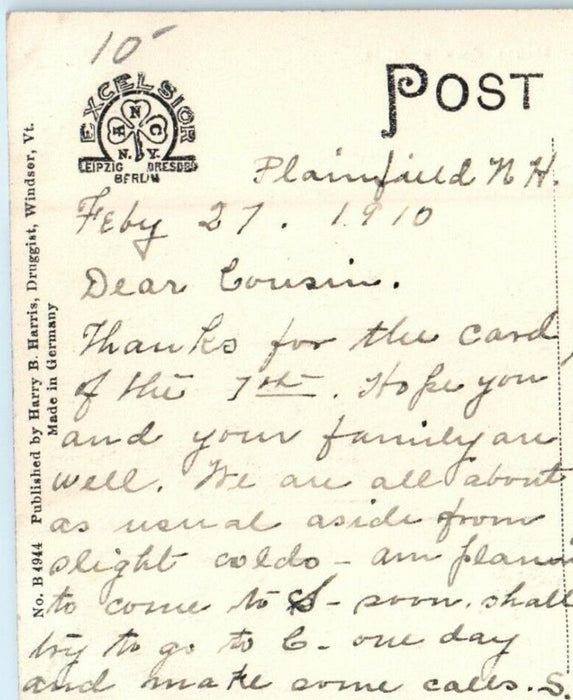 10
EXCELSIOR
A N C
N.Y.
LEIPZIG DRESDEN
BERLIN
POST
No. B 4944 Published by Harry B. Harris, Druggist, Windsor, Vt.
Made in Germany
Plainfield N H.
Feby 27. 1910
Dear Cousin.
Thanks for the card
of the 7th. Hope you
and your family are
well. We are all about
as usual aside from
slight colds - am plann
to come to S- soon. shall
try to go to C. one day
and make some calls. S.